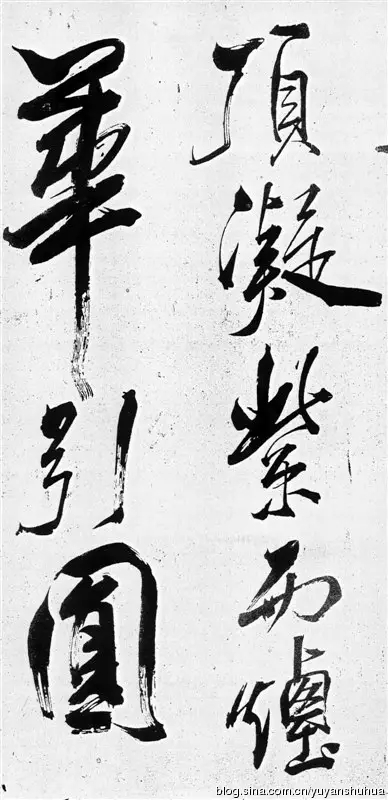 頂凝紫爐
華引圓
blog.sina.com.cn/yuyanshuhua